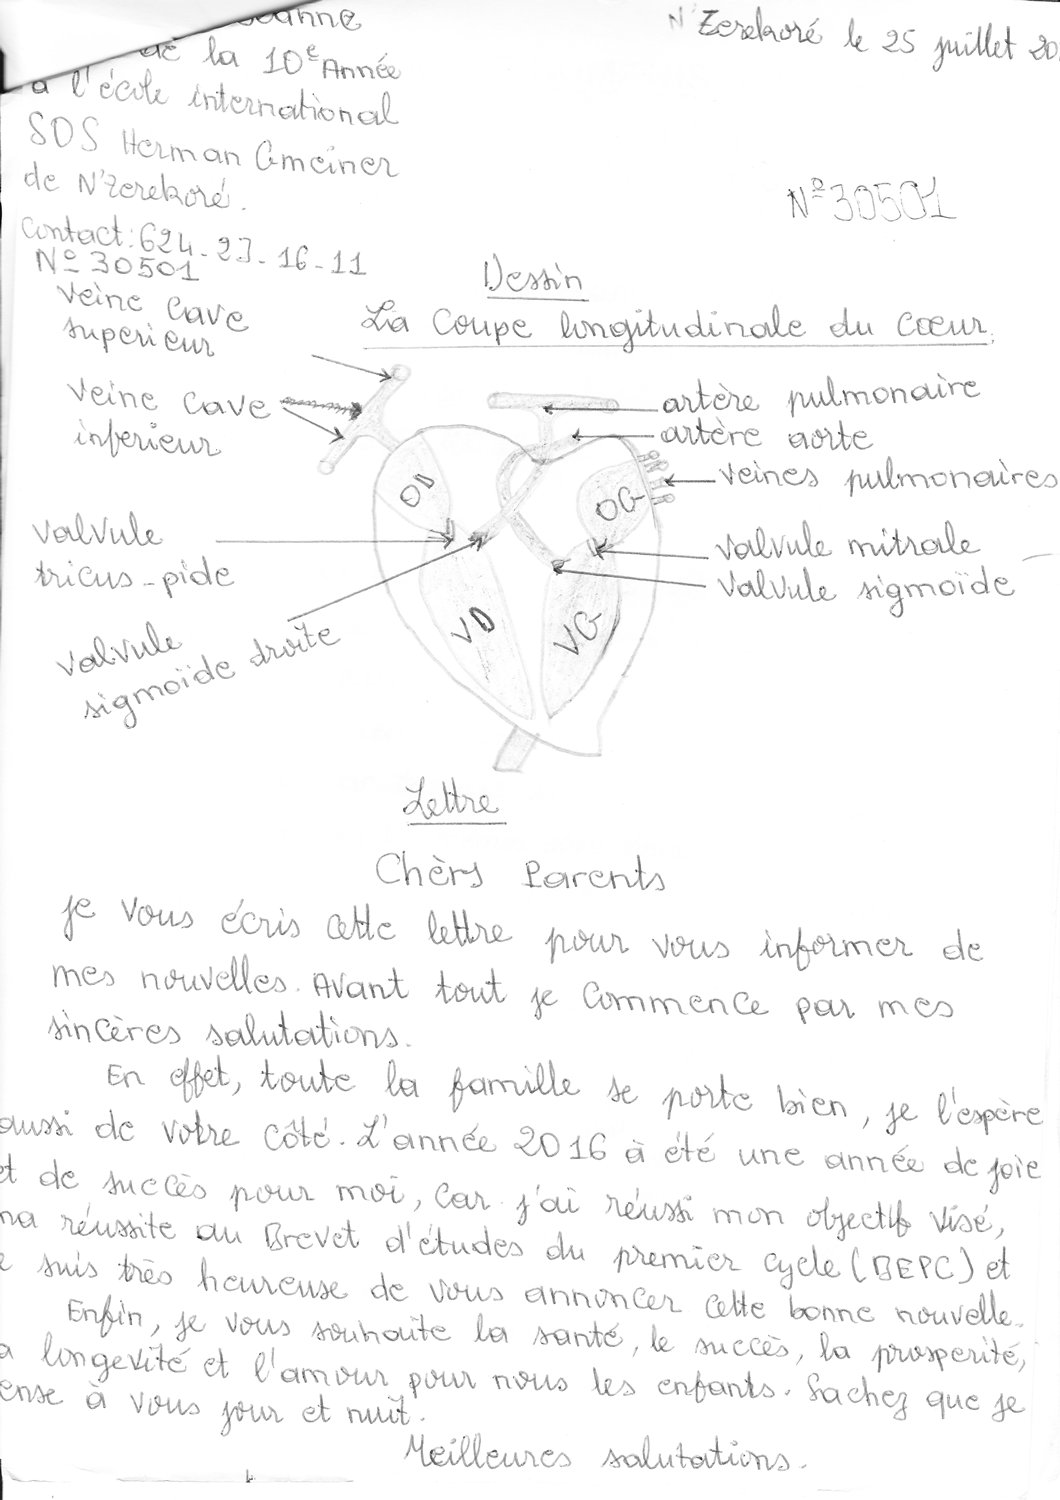 de la 10e Année
à l'école international
SOS Herman Gmeiner
de N'Zerekoré.
Contact: 624-23-16-11
Nº 30501
N'Zerekoré le 25 juillet 20
Nº 30501
Dessin
La Coupe longitudinale du Cœur.
Veine Cave
superieur
Veine Cave
inferieur
artère pulmonaire
artère aorte
veines pulmonaires
OD
OG
valvule
tricus-pide
valvule mitrale
valvule sigmoïde
VD
VG
valvule
sigmoïde droite
Lettre
Chèrs Parents
je vous écris cette lettre pour vous informer de
mes nouvelles. Avant tout je Commence par mes
sincères salutations.
En effet, toute la famille se porte bien, je l'espère
aussi de votre Côté. L'année 2016 à été une année de joie
et de succès pour moi, Car j'ai réussi mon objectif visé,
ma réussite au Brevet d'études du premier Cycle (BEPC) et
suis très heureuse de vous annoncer Cette bonne nouvelle.
Enfin, je vous souhaite la santé, le succès, la prosperité,
a longevité et l'amour pour nous les enfants. Sachez que je
ense à vous jour et nuit.
Meilleures salutations.